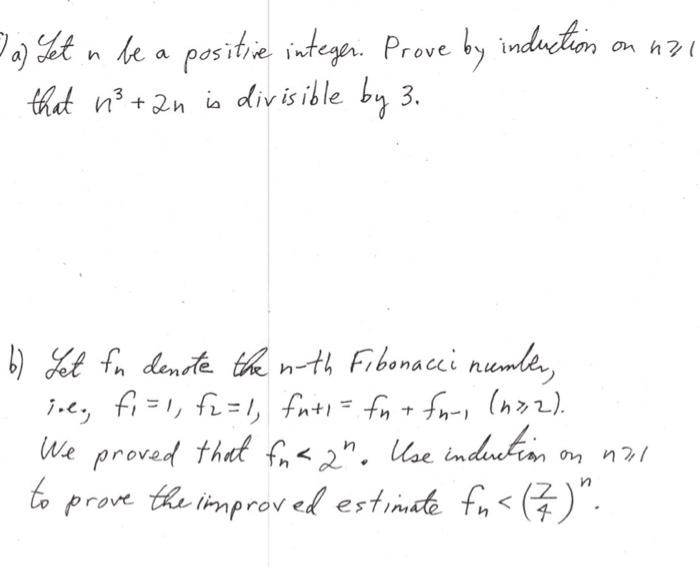 a) Let n be a positive integer. Prove by induction on n≥1
that n³ + 2n is divisible by 3.
b) Let fn denote the n-th Fibonacci number,
i.e., f₁ = 1, f₂ = 1, fn+1 = fn + fn-1 (n≥2).
We proved that fn < 2ⁿ. Use induction on n≥1
to prove the improved estimate fn < (7/4)ⁿ.